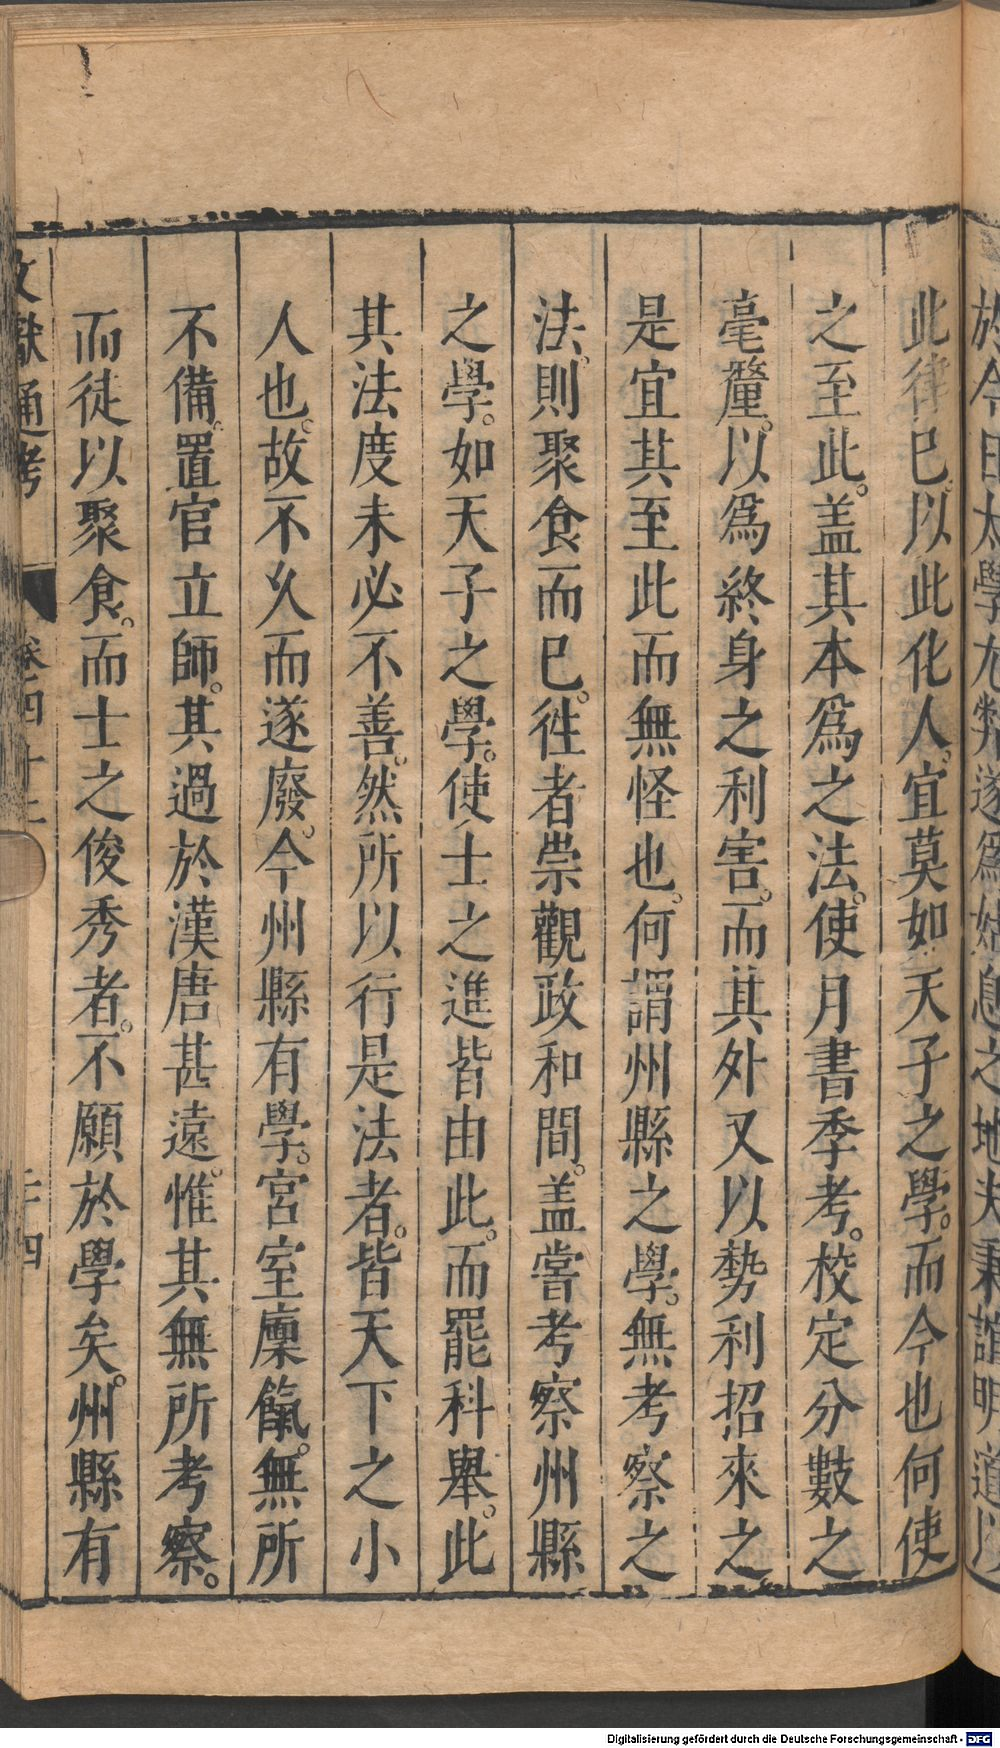 於今日太學尤弊遂爲姑息之地夫秉誼明道以
此律已以此化人宜莫如天子之學而今也何使
之至此。盖其本爲之法。使月書季考。校定分數之
毫釐。以爲終身之利害。而其外又以勢利招來之
是宜其至此而無怪也。何謂州縣之學。無考察之
法。則聚食而巳。徃者崇觀政和間。盖嘗考察州縣
之學。如天子之學。使士之進皆由此。而罷科舉。此
其法度未必不善。然所以行是法者。皆天下之小
人也。故不乆而遂廢。今州縣有學。宮室廩餼。無所
不備。置官立師。其過於漢唐甚遠。惟其無所考察。
而徒以聚食。而士之俊秀者。不願於學矣。州縣有
文獻通考 卷四十二 二十四
Digitalisierung gefördert durch die Deutsche Forschungsgemeinschaft - DFG